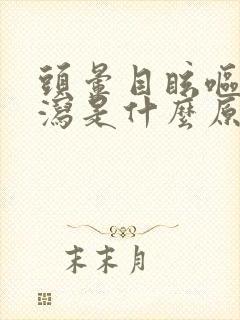 頭暈目眩嘔
瀉是什麼原
末末月